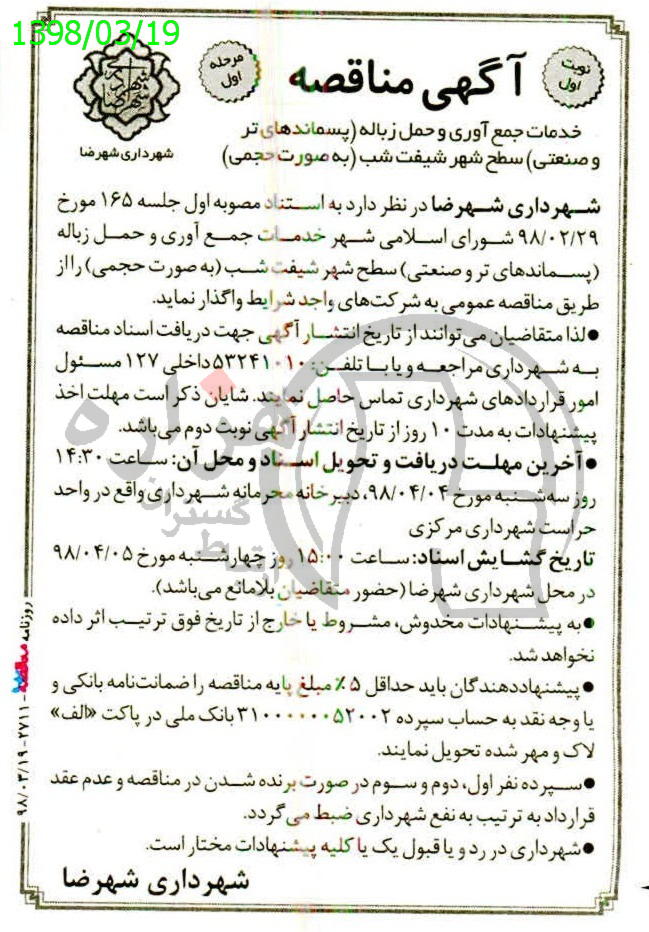 1398/03/19
نوبت اول
آگهی مناقصه
مرحله اول
شهرداری شهرضا
خدمات جمع آوری و حمل زباله (پسماندهای تر
و صنعتی) سطح شهر شیفت شب (به صورت حجمی)
شهرداری شهرضا در نظر دارد به استناد مصوبه اول جلسه ۱۶۵ مورخ
۹۸/۰۲/۲۹ شورای اسلامی شهر خدمات جمع آوری و حمل زباله
(پسماندهای تر و صنعتی) سطح شهر شیفت شب (به صورت حجمی) را از
طریق مناقصه عمومی به شرکت‌های واجد شرایط واگذار نماید.
●لذا متقاضیان می‌توانند از تاریخ انتشار آگهی جهت دریافت اسناد مناقصه
به شهرداری مراجعه و یا با تلفن: ۵۳۲۴۱۰۱۰ داخلی ۱۲۷ مسئول
امور قراردادهای شهرداری تماس حاصل نمایند. شایان ذکر است مهلت اخذ
پیشنهادات به مدت ۱۰ روز از تاریخ انتشار آگهی نوبت دوم می‌باشد.
●آخرین مهلت دریافت و تحویل اسناد و محل آن: ساعت ۱۴:۳۰
روز سه‌شنبه مورخ ۹۸/۰۴/۰۴، دبیرخانه محرمانه شهرداری واقع در واحد
حراست شهرداری مرکزی
تاریخ گشایش اسناد: ساعت ۱۵:۰۰ روز چهارشنبه مورخ ۹۸/۰۴/۰۵
در محل شهرداری شهرضا (حضور متقاضیان بلامانع می‌باشد).
●به پیشنهادات مخدوش، مشروط یا خارج از تاریخ فوق ترتیب اثر داده
نخواهد شد.
●پیشنهاددهندگان باید حداقل ۵٪ مبلغ پایه مناقصه را ضمانت‌نامه بانکی و
یا وجه نقد به حساب سپرده ۳۱۰۰۰۰۰۰۵۲۰۰۲ بانک ملی در پاکت «الف»
لاک و مهر شده تحویل نمایند.
●سپرده نفر اول، دوم و سوم در صورت برنده شدن در مناقصه و عدم عقد
قرارداد به ترتیب به نفع شهرداری ضبط می‌گردد.
●شهرداری در رد و یا قبول یک یا کلیه پیشنهادات مختار است.
شهرداری شهرضا
روزنامه مناقصه - ۲۷۱۱ - ۹۸/۰۳/۱۹
هزاره
گستران